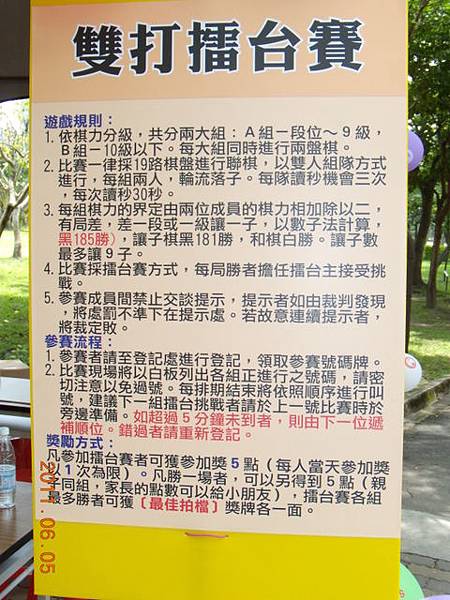 雙打擂台賽
遊戲規則：
1. 依棋力分級，共分兩大組：A組－段位～9級，
B組－10級以下。每大組同時進行兩盤棋。
2. 比賽一律採19路棋盤進行聯棋，以雙人組隊方式
進行，每組兩人，輪流落子。每隊讀秒機會三次
，每次讀秒30秒。
3. 每組棋力的界定由兩位成員的棋力相加除以二，
有局差，差一段或一級讓一子，以數子法計算，
黑185勝），讓子棋黑181勝，和棋白勝。讓子數
最多讓９子。
4. 比賽採擂台賽方式，每局勝者擔任擂台主接受挑
戰。
5. 參賽成員間禁止交談提示，提示者如由裁判發現
，將處罰不準下在提示處。若故意連續提示者，
將裁定敗。
參賽流程：
1. 參賽者請至登記處進行登記，領取參賽號碼牌。
2. 比賽現場將以白板列出各組正進行之號碼，請密
切注意以免過號。每排期結束將依照順序進行叫
號，建議下一組擂台挑戰者請於上一號比賽時於
旁邊準備。如超過５分鐘未到者，則由下一位遞
補順位。錯過者請重新登記。
獎勵方式：
凡參加擂台賽者可獲參加獎５點（每人當天參加獎
以１次為限）。凡勝一場者，可以另得到５點（親
子同組，家長的點數可以給小朋友），擂台賽各組
最多勝者可獲〔最佳拍檔〕獎牌各一面。
2011.06.05